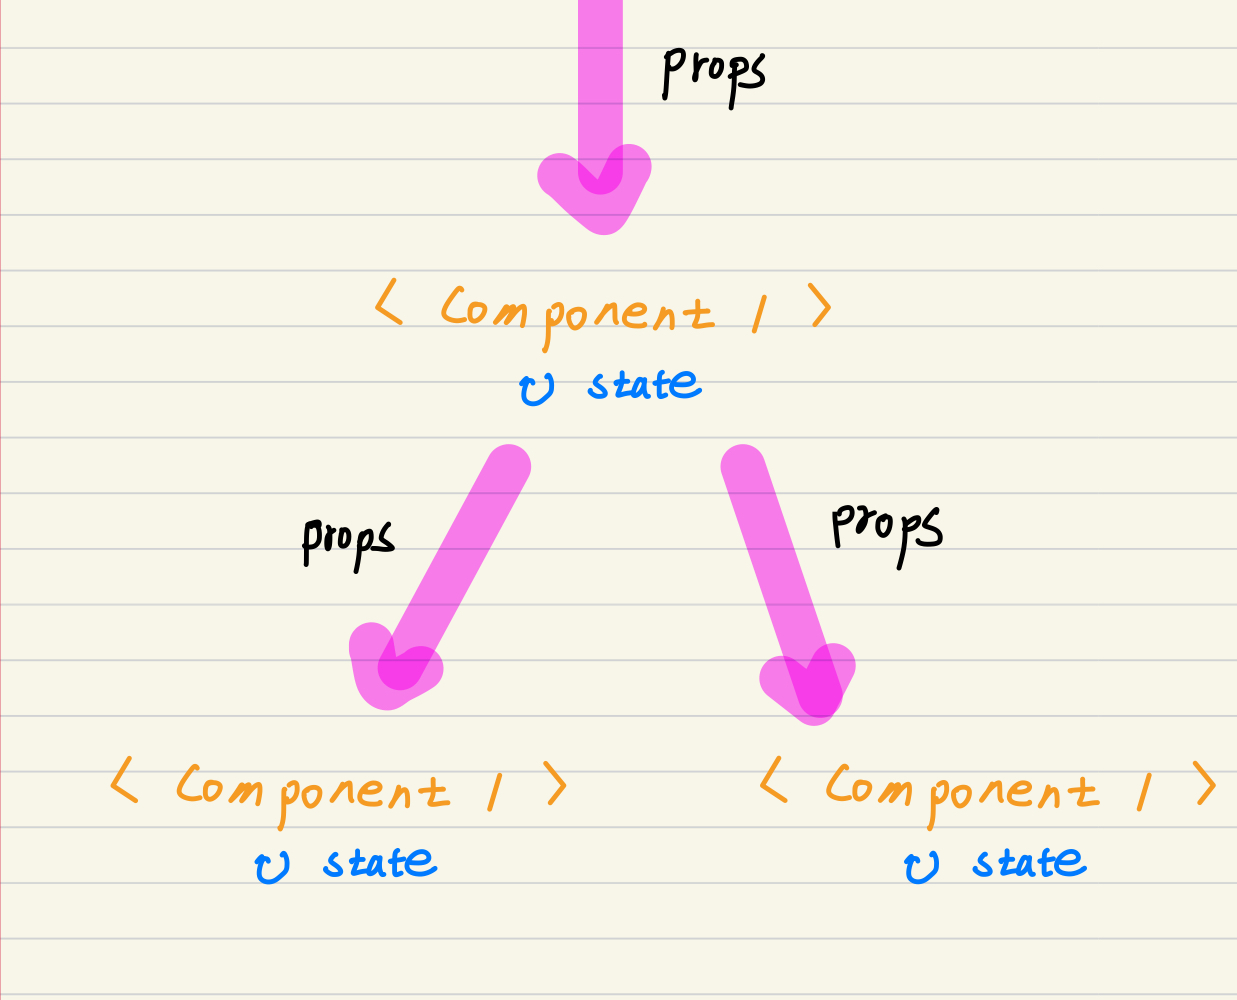 props
< Component / >
state
props
props
< Component / >
< Component / >
state
state